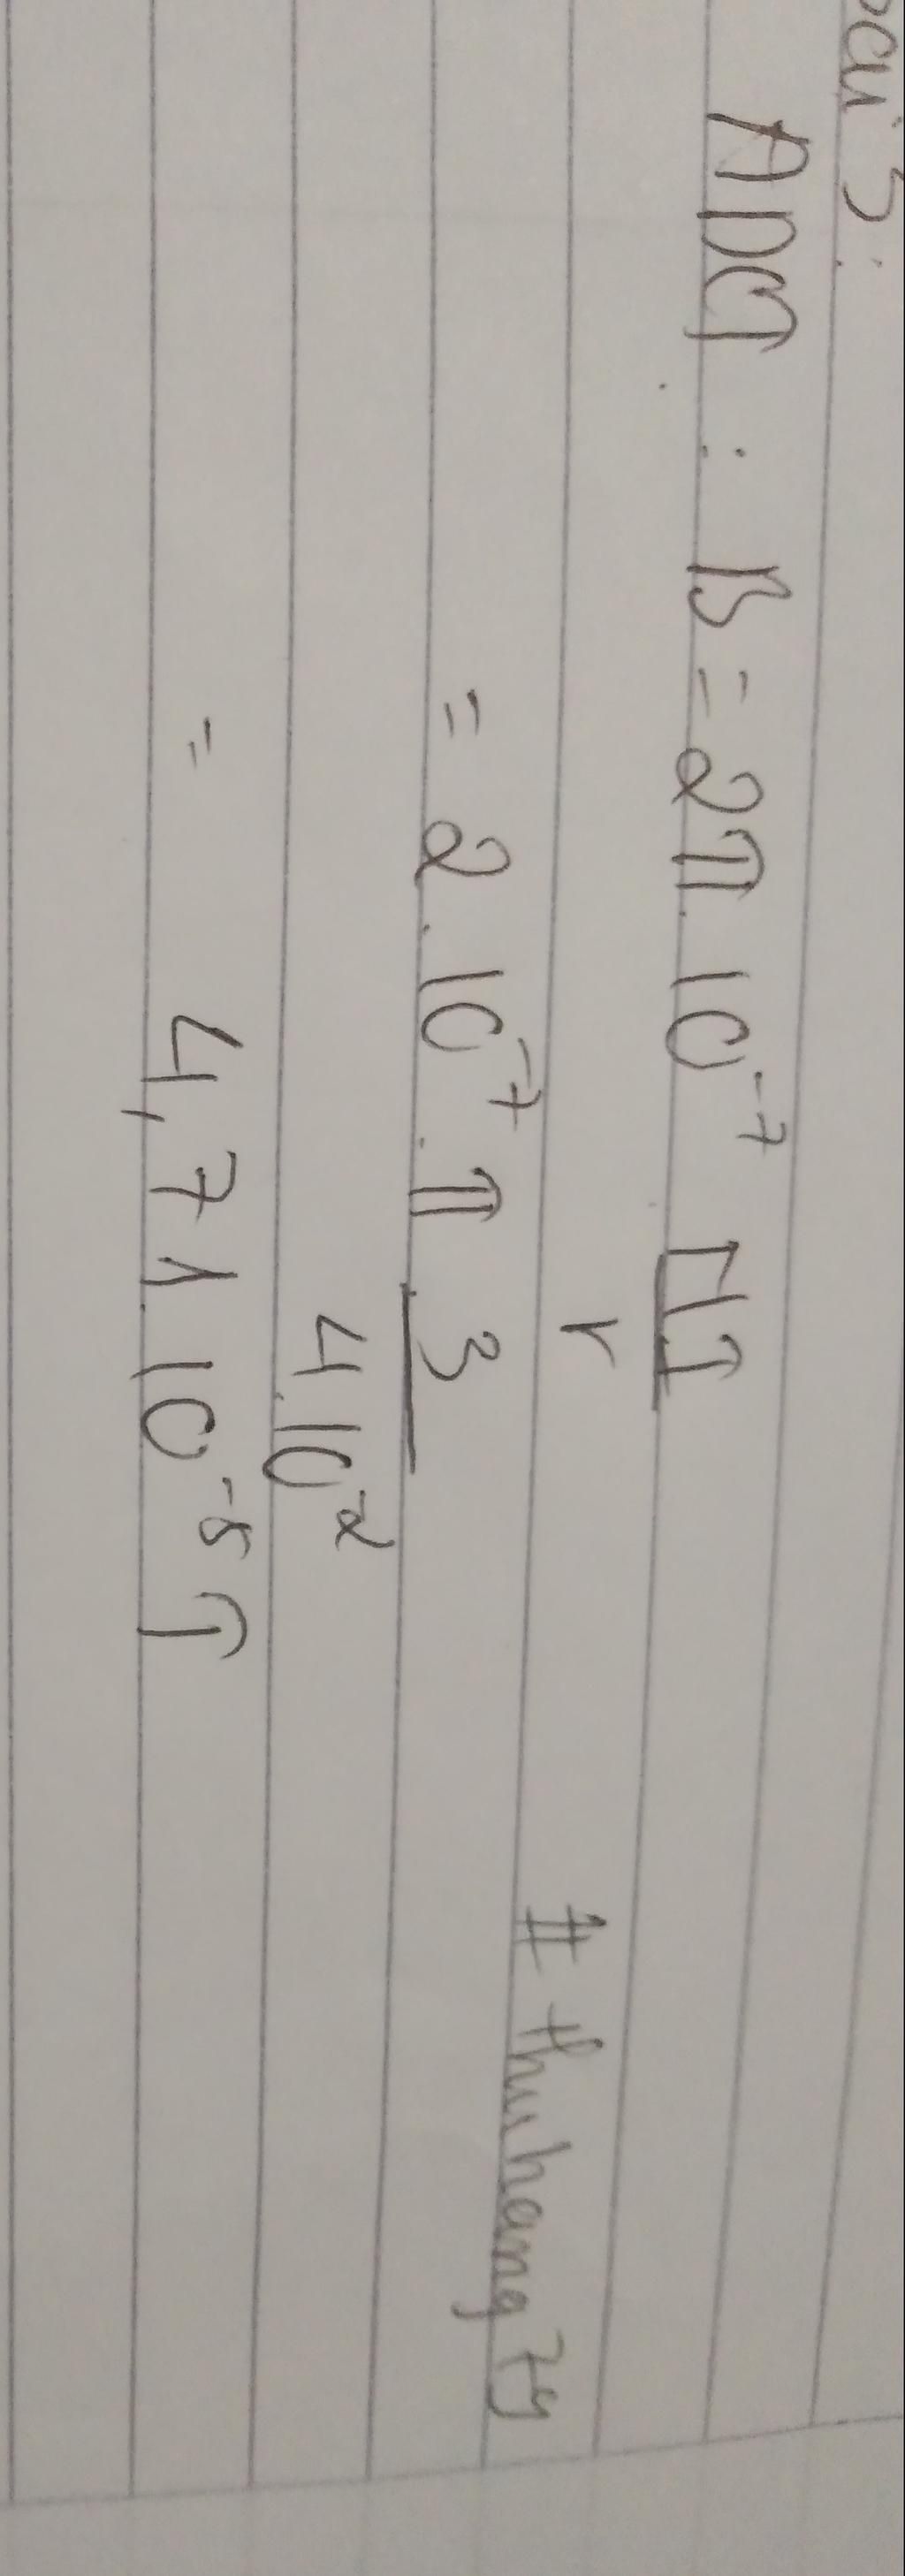 bài 3:
ADCT : B = 2π.10⁻⁷ N.I
r
= 2.10⁻⁷.π 3
4.10⁻²
= 4,71.10⁻⁵ T
# thuhang79